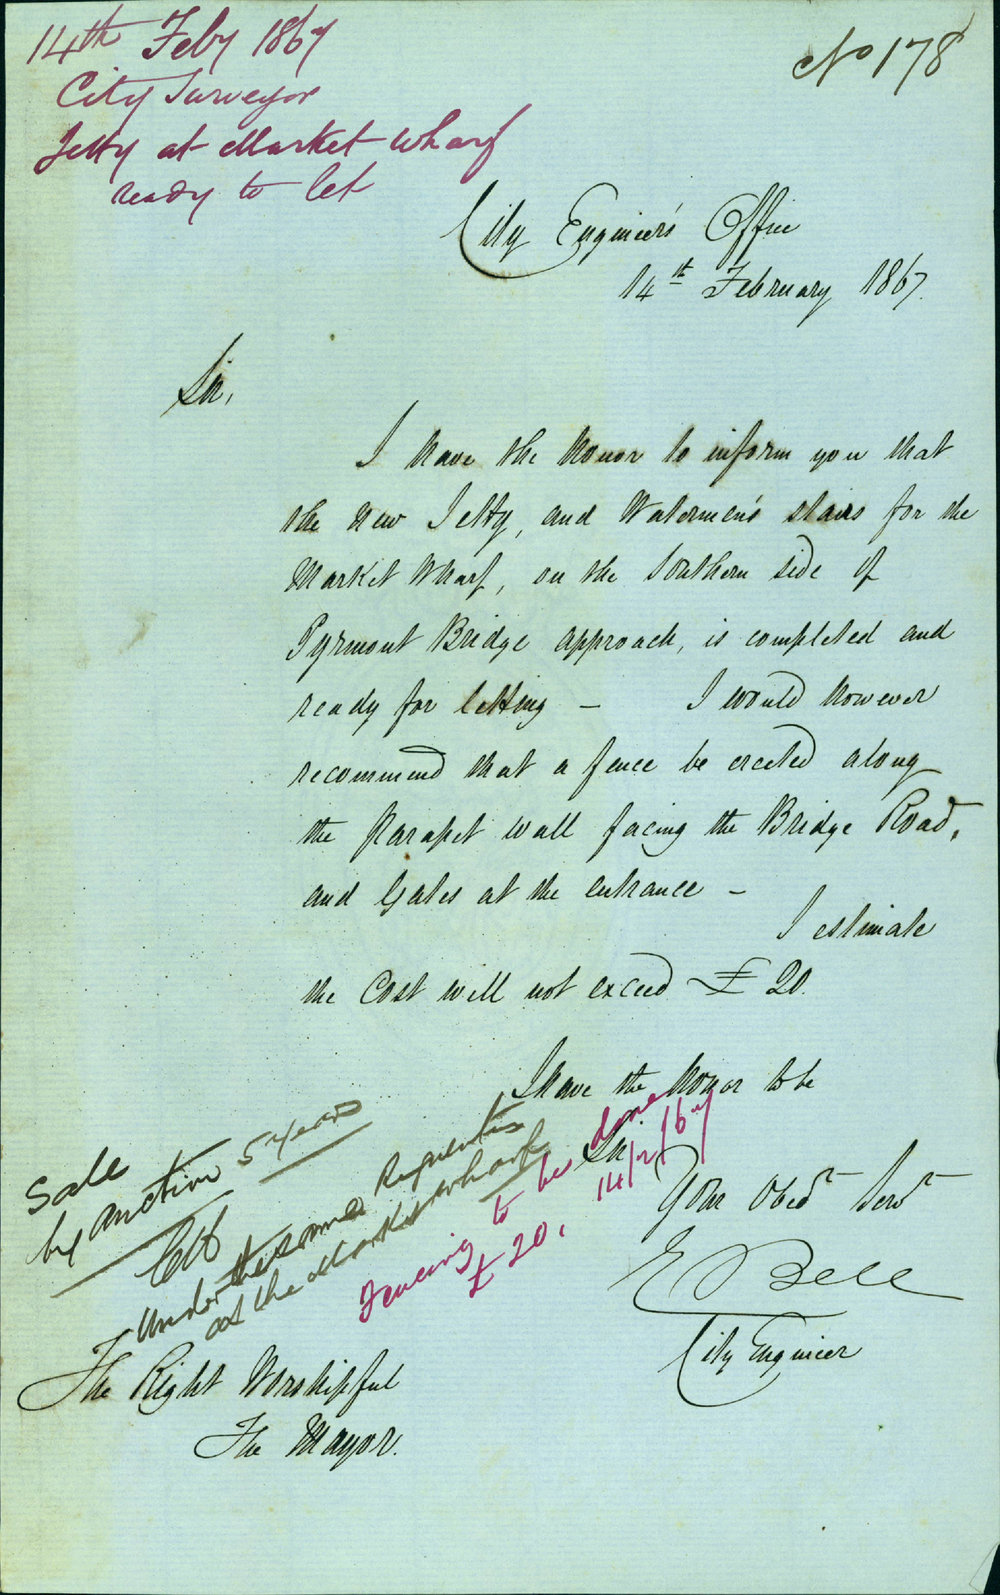 14th Feby 1867
City Surveyor
Jetty at Market Wharf
ready to let
No 178
City Engineer's Office
14th February 1867.
Sir,
I have the honor to inform you that
the new Jetty, and Watermen's stairs for the
Market Wharf, on the Southern side of
Pyrmont Bridge approach, is completed and
ready for letting – I would however
recommend that a fence be erected along
the Parapet wall facing the Bridge Road,
and Gates at the entrance –
I estimate
the Cost will not exceed £20.
I have the honor to be
Sir
Your Obedt Servt
E Bell
City Engineer
Sale
by auction 5 years
let
Under the same
as the Market Wharf
Fencing to be done
£20. 14/2/67
The Right Worshipful
The Mayor.